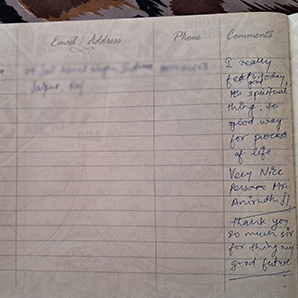 Email / Address
Phone
Comments
Jaipur, Raj
I really
feel good today,
spiritual
thing, so
good way
for process
of life.
Very Nice
Persons Mr.
Anirudh Ji
Thank you
so much sir
for thing my
good future